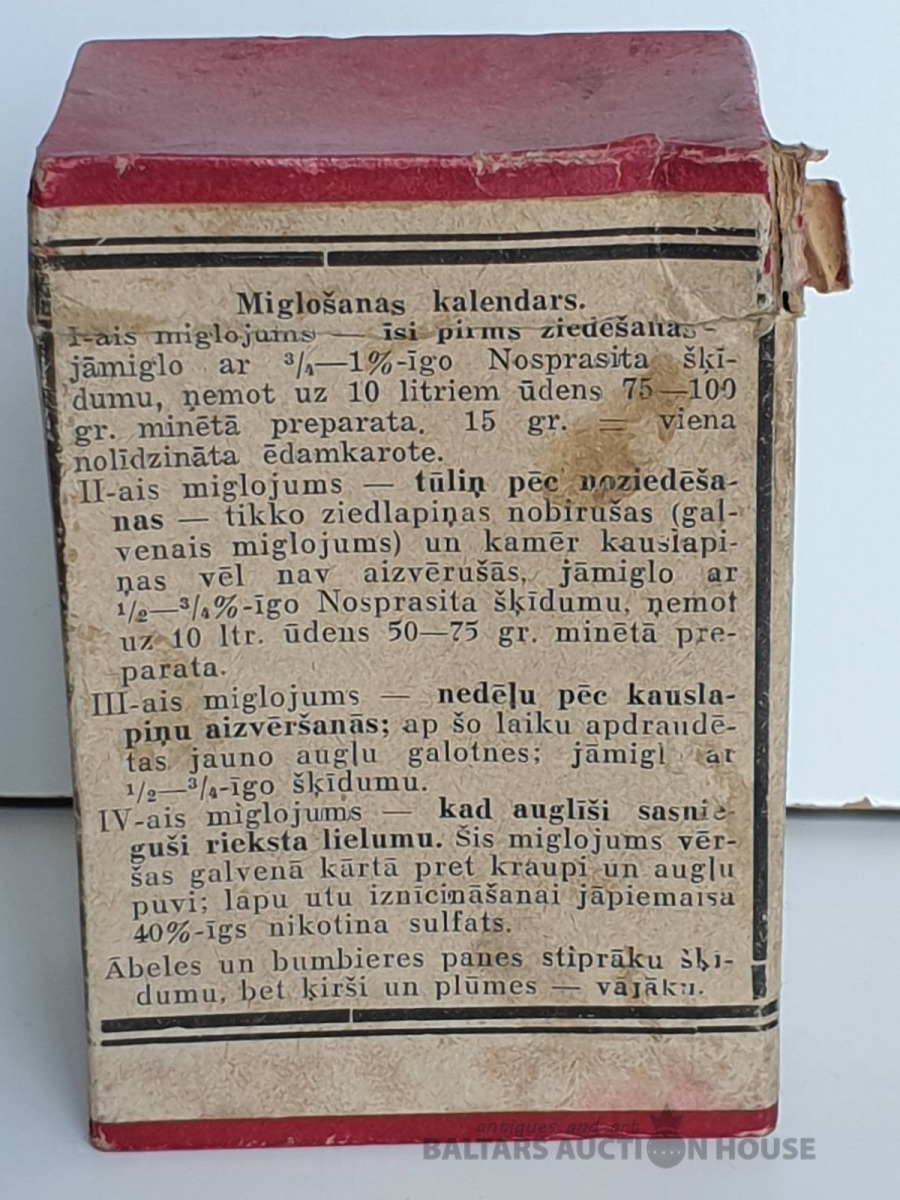 Miglošanas kalendars.
I-ais miglojums — īsi pirms ziedēšanas —
jāmiglo ar ³/₄—1%-īgo Nosprasita šķī-
dumu, ņemot uz 10 litriem ūdens 75—100
gr. minētā preparata. 15 gr. = viena
nolīdzināta ēdamkarote.
II-ais miglojums — tūliņ pēc noziedēša-
nas — tikko ziedlapiņas nobirušas (gal-
venais miglojums) un kamēr kauslapi-
ņas vēl nav aizvērušās, jāmiglo ar
¹/₂—³/₄%-īgo Nosprasita šķīdumu, ņemot
uz 10 ltr. ūdens 50—75 gr. minētā pre-
parata.
III-ais miglojums — nedēļu pēc kausla-
piņu aizvēršanās; ap šo laiku apdraudē-
tas jauno augļu galotnes; jāmigl ar
¹/₂—³/₄-īgo šķīdumu.
IV-ais miglojums — kad auglīši sasnie-
guši rieksta lielumu. Šis miglojums vēr-
šas galvenā kārtā pret kraupi un augļu
puvi; lapu utu iznīcināšanai jāpiemaisa
40%-īgs nikotina sulfats.
Ābeles un bumbieres panes stiprāku šķī-
dumu, bet ķirši un plūmes — vājāku.
antiques and art
BALTARS AUCTION HOUSE